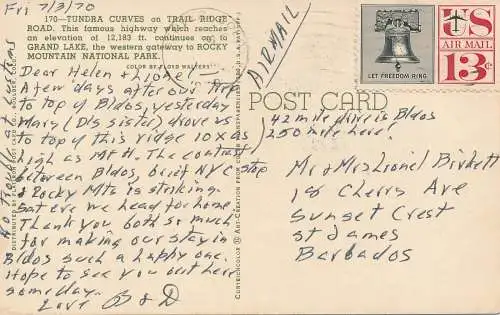 Fri 7/3/70
170—TUNDRA CURVES on TRAIL RIDGE
ROAD. This famous highway which reaches
an elevation of 12,183 ft. continues on to
GRAND LAKE, the western gateway to ROCKY
MOUNTAIN NATIONAL PARK.
COLOR BY FLOYD WALTERS
AIRMAIL
LET FREEDOM RING
US
AIR MAIL
13c
POST CARD
Dear Helen + Lionel –
A few days after our trip
to top of Bdos, yesterday
Mary (D's sister) drove us
to top of this ridge 10x as
high as Mt H. The contrast
between Bdos, brief NYC stop
+ Rocky Mts is striking.
Sat eve we head for home.
Thank you both so much
for making our stay in
Bdos such a happy one.
Hope to see you out here
someday.
Love B & D
42 mile drive is Bdos
250 mile here!
Mr + Mrs Lionel Birkett
18 Cherry Ave
Sunset Crest
St James
Barbados